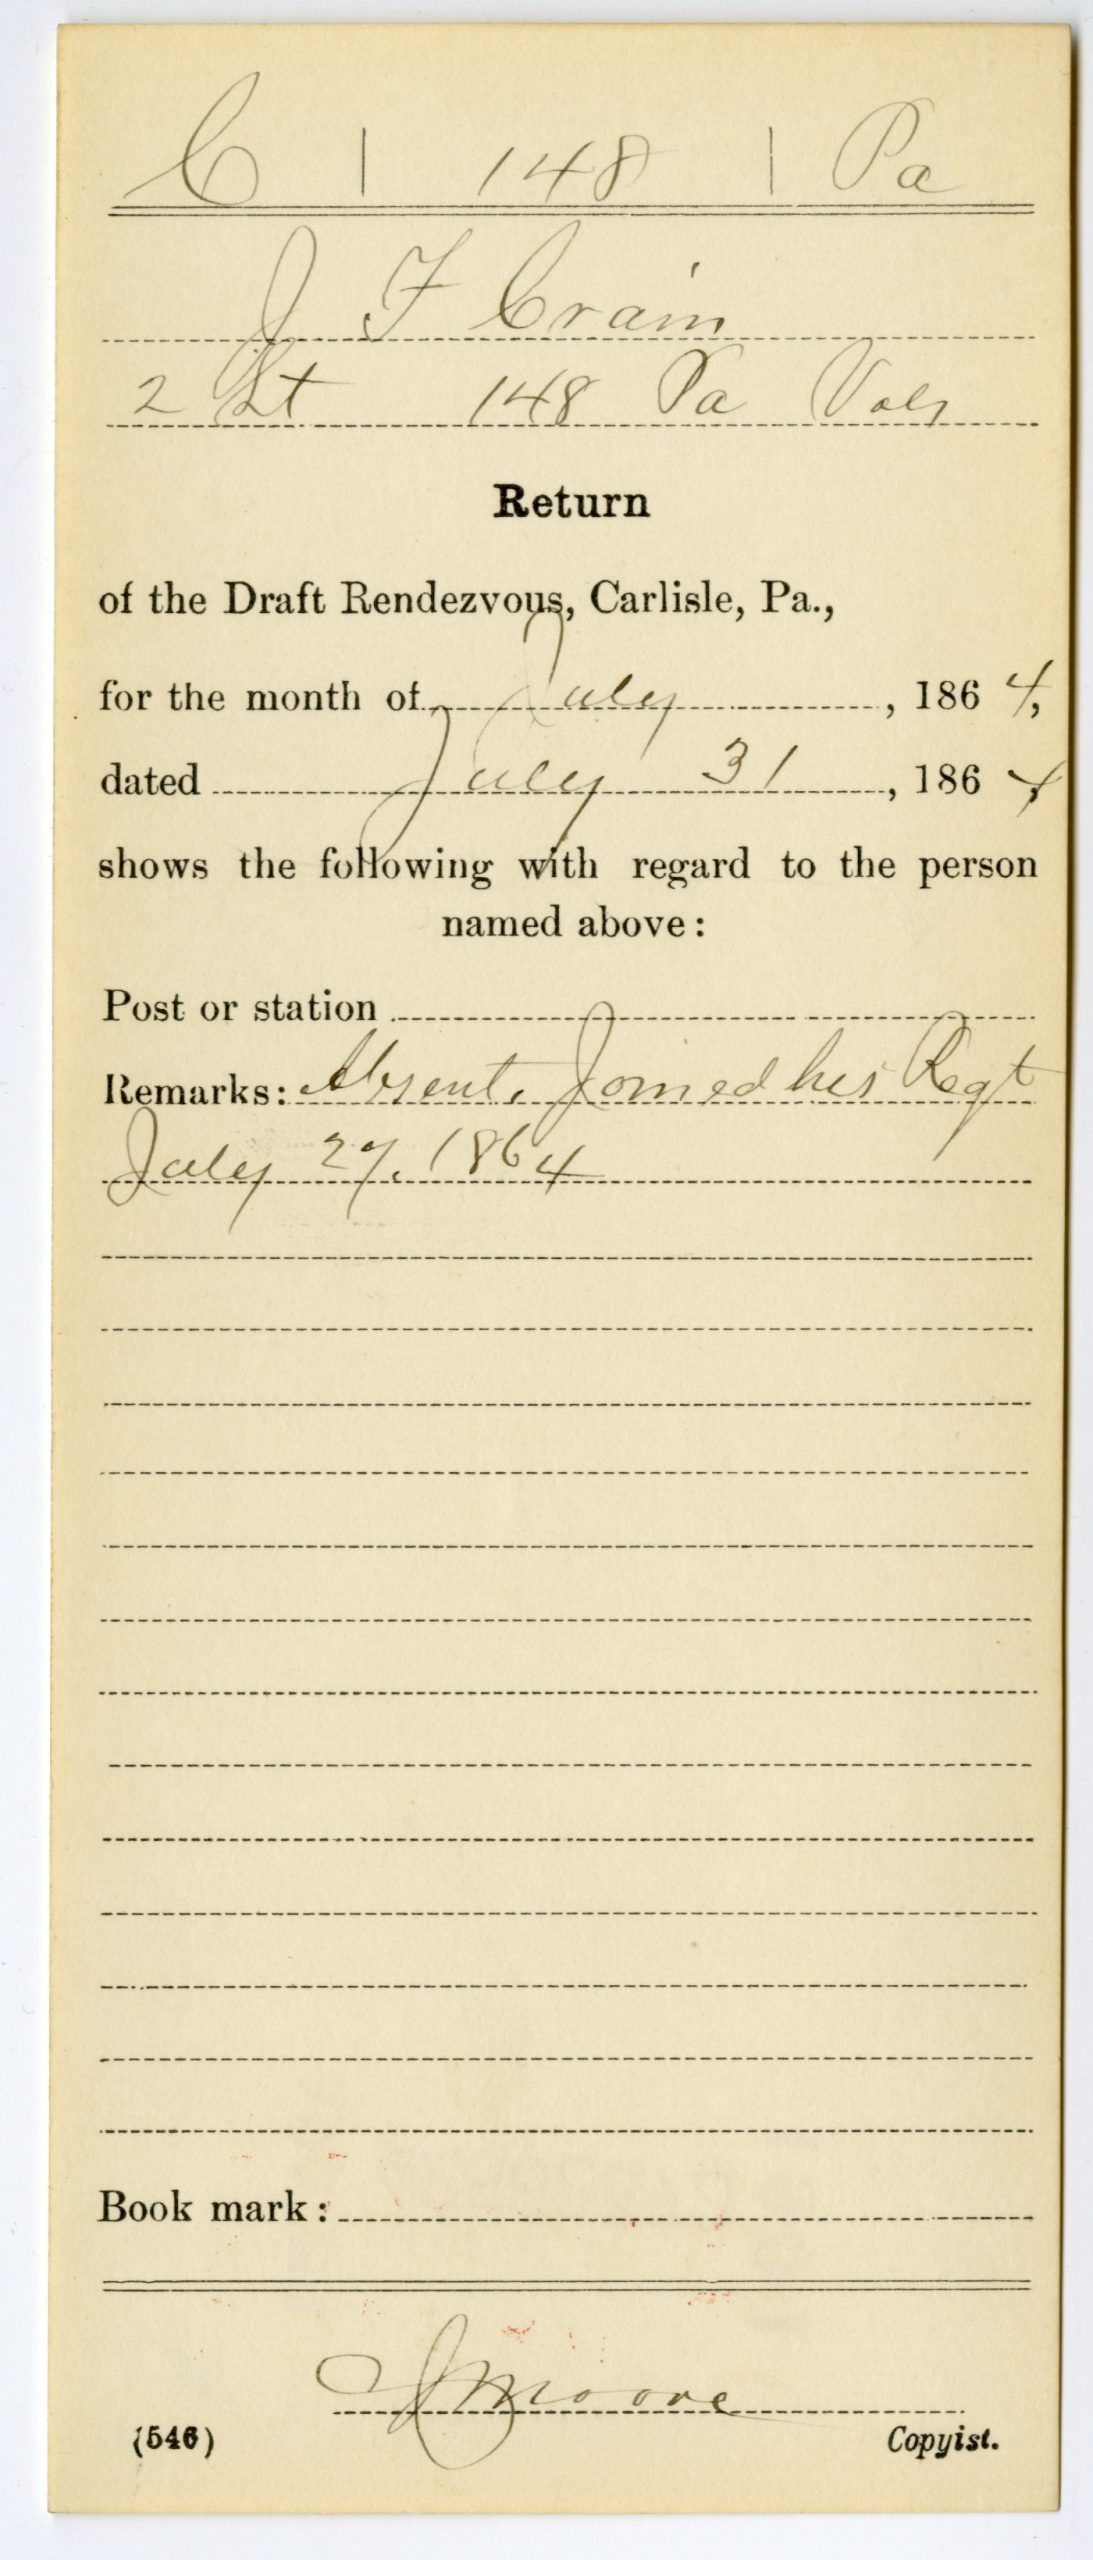 C | 148 | Pa
J F Crain
2 Lt 148 Pa Vols
Return
of the Draft Rendezvous, Carlisle, Pa.,
for the month of July, 1864,
dated July 31, 1864,
shows the following with regard to the person
named above:
Post or station
Remarks: Absent. Joined his Regt
July 27. 1864
Book mark:
J Moore
(546) Copyist.